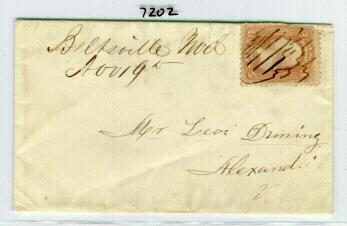 7202
Beltsville Md
Nov 19th
Mr Levi Deming
Alexandri
V